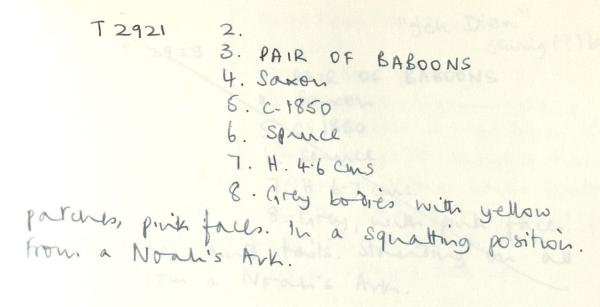 T 2921 2.
3. PAIR OF BABOONS
4. Saxon
5. C-1850
6. Spruce
7. H. 4.6 cms
8. Grey bodies with yellow
patches, pink faces. In a squatting position.
From a Noah's Ark.